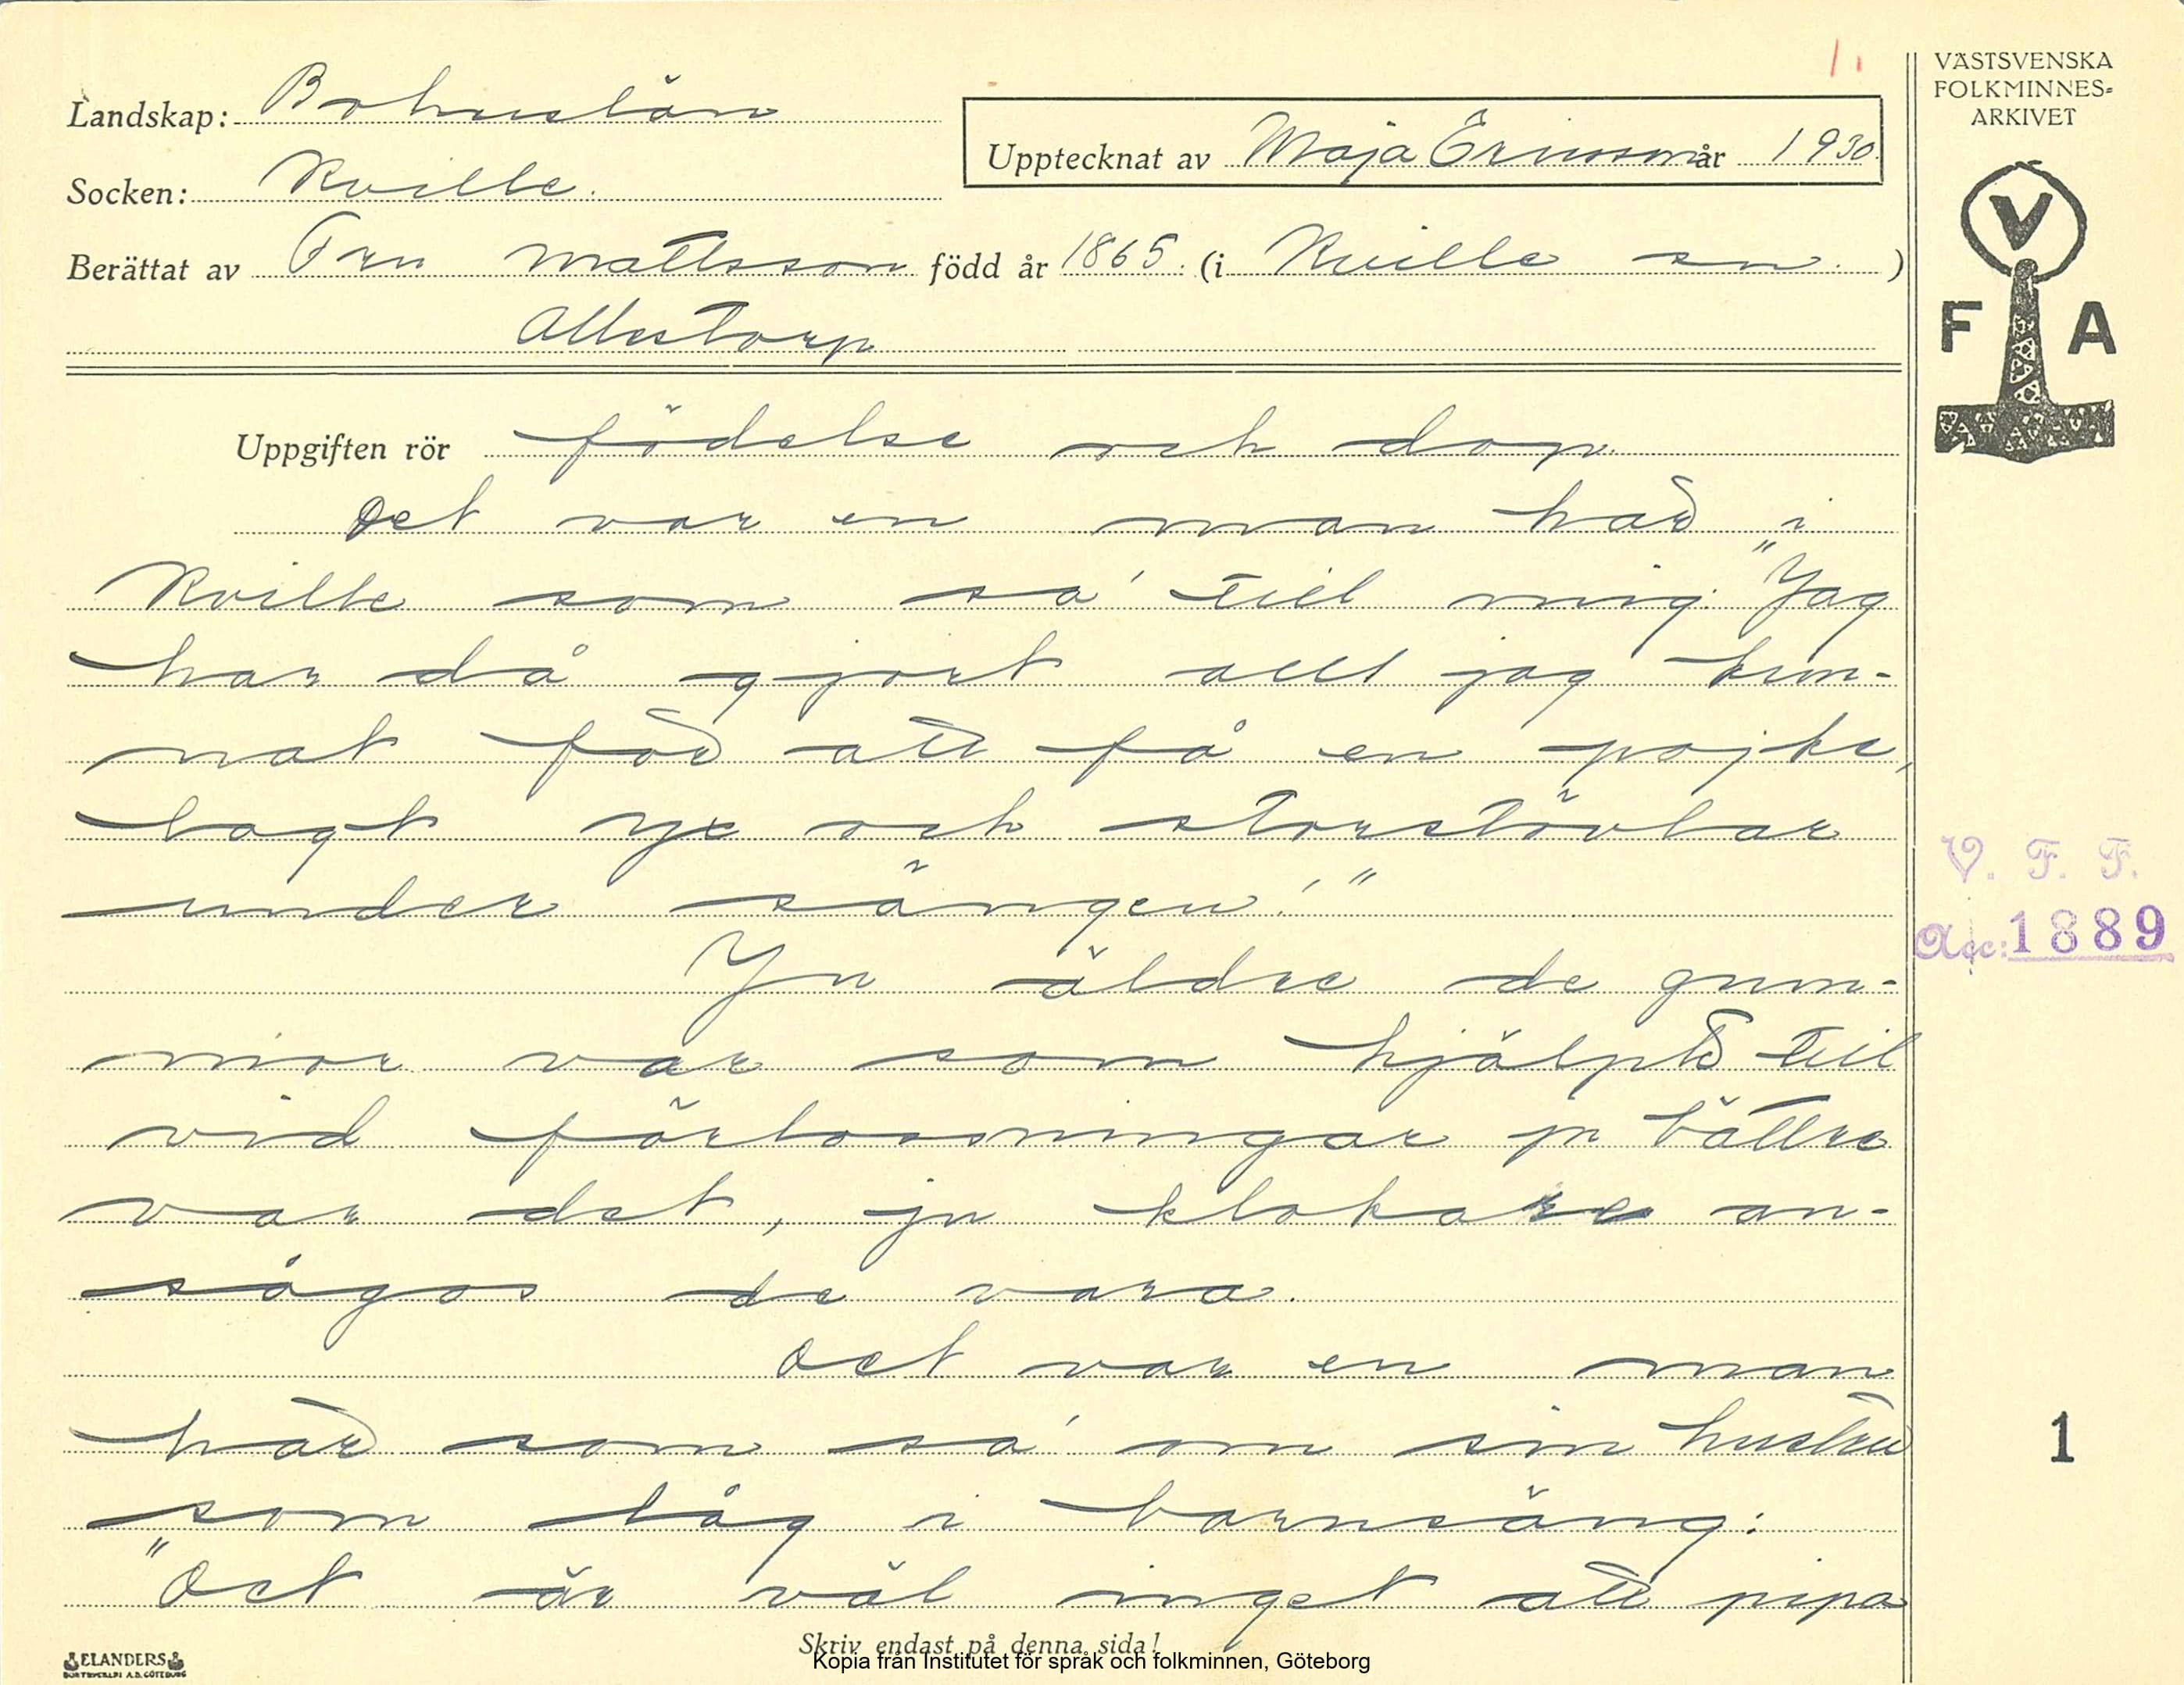 1.
VÄSTSVENSKA
FOLKMINNES=
ARKIVET
Landskap: Bohuslän
Upptecknat av Maja Ericsson år 1930
Socken: Kville.
Berättat av Fru Mattsson född år 1865. (i Kville sn. )
Allestorp
V
F A
Uppgiften rör födelse och dop.
Det var en man här i
Kville som sa' till mig: "Jag
har då gjort allt jag kun-
nat för att få en pojke,
lagt yx och storstövlar
under sängen!"
Ju äldre de gum-
mor var som hjälpte till
vid förlossningar ju bättre
var det, ju klokare an-
sågos de vara.
Det var en man
här som sa' om sin hustru
som låg i barnsäng:
"Det är väl inget att pipa
V. F. F.
Acc: 1889
1
ELANDERS
BOKTRYCKERI A.B. GÖTEBORG
Skriv endast på denna sida!
Kopia från Institutet för språk och folkminnen, Göteborg